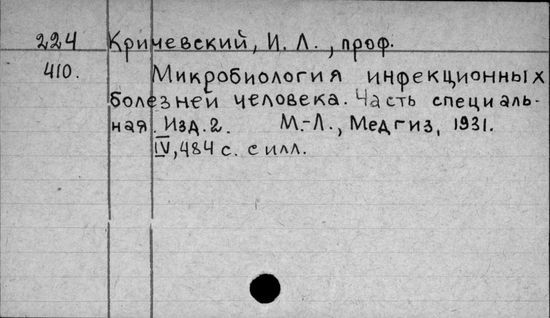 224 Кричевский, И. Л., проф.
410. Микробиология инфекционных
болезней человека. Часть специаль-
ная. Изд. 2. М.-Л., Медгиз, 1931.
IV, 484 с. с илл.